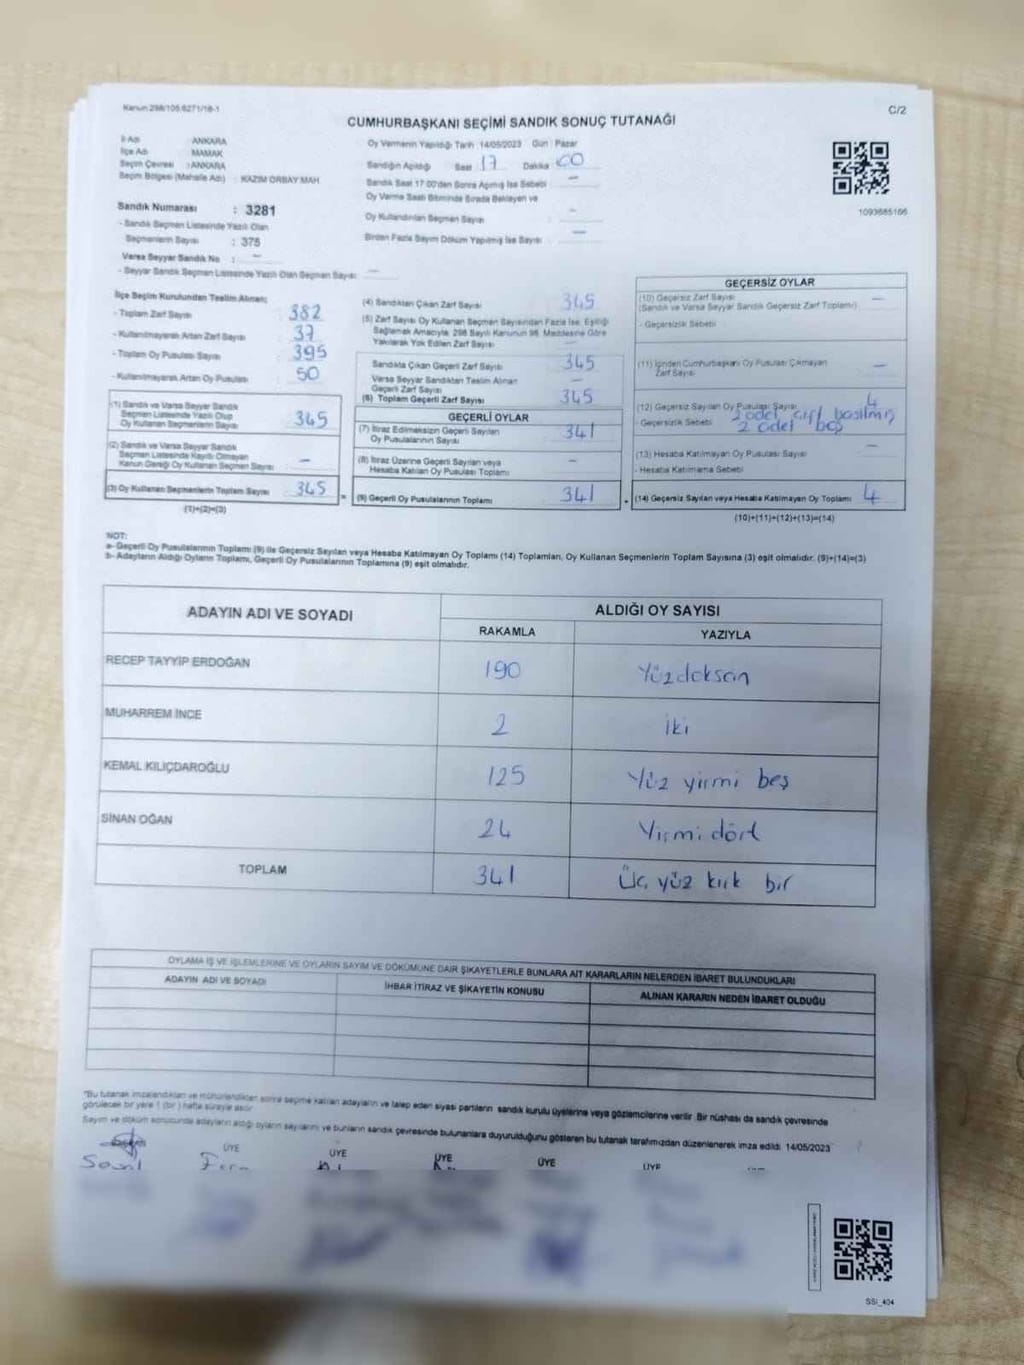 Kanun 298/105,6271/18-1
C/2
CUMHURBAŞKANI SEÇİMİ SANDIK SONUÇ TUTANAĞI
İl Adı : ANKARA
İlçe Adı : MAMAK
Seçim Çevresi : ANKARA
Seçim Bölgesi (Mahalle Adı) : KAZIM ORBAY MAH
Sandık Numarası : 3281
- Sandık Seçmen Listesinde Yazılı Olan
Seçmenlerin Sayısı : 375
Varsa Seyyar Sandık No : —
- Seyyar Sandık Seçmen Listesinde Yazılı Olan Seçmen Sayısı : —
Oy Vermenin Yapıldığı Tarih : 14/05/2023 Gün : Pazar
Sandığın Açıldığı Saat 17 Dakika 00
Sandık Saat 17:00'den Sonra Açılmış İse Sebebi : —
Oy Verme Saati Bitiminde Sırada Bekleyen ve
Oy Kullandırılan Seçmen Sayısı : —
Birden Fazla Sayım Döküm Yapılmış İse Sayısı : —
1093685166
İlçe Seçim Kurulundan Teslim Alınan;
- Toplam Zarf Sayısı : 382
- Kullanılmayarak Artan Zarf Sayısı : 37
- Toplam Oy Pusulası Sayısı : 395
- Kullanılmayarak Artan Oy Pusulası : 50
(1) Sandık ve Varsa Seyyar Sandık
Seçmen Listesinde Yazılı Olup
Oy Kullanan Seçmenlerin Sayısı : 345
(2) Sandık ve Varsa Seyyar Sandık
Seçmen Listesinde Kayıtlı Olmayan
Kanun Gereği Oy Kullanan Seçmen Sayısı : —
(3) Oy Kullanan Seçmenlerin Toplam Sayısı : 345
(1)+(2)=(3)
(4) Sandıktan Çıkan Zarf Sayısı : 345
(5) Zarf Sayısı Oy Kullanan Seçmen Sayısından Fazla İse, Eşitliği
Sağlamak Amacıyla, 298 Sayılı Kanunun 98. Maddesine Göre
Yakılarak Yok Edilen Zarf Sayısı : —
Sandıkta Çıkan Geçerli Zarf Sayısı : 345
Varsa Seyyar Sandıktan Teslim Alınan
Geçerli Zarf Sayısı : —
(6) Toplam Geçerli Zarf Sayısı : 345
GEÇERLİ OYLAR
(7) İtiraz Edilmeksizin Geçerli Sayılan
Oy Pusulalarının Sayısı : 341
(8) İtiraz Üzerine Geçerli Sayılan veya
Hesaba Katılan Oy Pusulası Toplamı : —
(9) Geçerli Oy Pusulalarının Toplamı : 341
GEÇERSİZ OYLAR
(10) Geçersiz Zarf Sayısı : —
(Sandık ve Varsa Seyyar Sandık Geçersiz Zarf Toplamı)
- Geçersizlik Sebebi :
(11) İçinden Cumhurbaşkanı Oy Pusulası Çıkmayan
Zarf Sayısı : —
(12) Geçersiz Sayılan Oy Pusulası Sayısı : 4
- Geçersizlik Sebebi : 2 adet çift basılmış
2 adet boş
(13) Hesaba Katılmayan Oy Pusulası Sayısı : —
- Hesaba Katılmama Sebebi :
(14) Geçersiz Sayılan veya Hesaba Katılmayan Oy Toplamı 4
(10)+(11)+(12)+(13)=(14)
NOT:
a- Geçerli Oy Pusulalarının Toplamı (9) ile Geçersiz Sayılan veya Hesaba Katılmayan Oy Toplamı (14) Toplamları, Oy Kullanan Seçmenlerin Toplam Sayısına (3) eşit olmalıdır. (9)+(14)=(3)
b- Adayların Aldığı Oyların Toplamı, Geçerli Oy Pusulalarının Toplamına (9) eşit olmalıdır.
ADAYIN ADI VE SOYADI
ALDIĞI OY SAYISI
RAKAMLA YAZIYLA
RECEP TAYYİP ERDOĞAN 190 Yüzdoksan
MUHARREM İNCE 2 iki
KEMAL KILIÇDAROĞLU 125 Yüz yirmi beş
SİNAN OĞAN 24 Yirmi dört
TOPLAM 341 Üç yüz kırk bir
OYLAMA İŞ VE İŞLEMLERİNE VE OYLARIN SAYIM VE DÖKÜMÜNE DAİR ŞİKAYETLERLE BUNLARA AİT KARARLARIN NELERDEN İBARET BULUNDUKLARI
ADAYIN ADI VE SOYADI İHBAR İTİRAZ VE ŞİKAYETİN KONUSU ALINAN KARARIN NEDEN İBARET OLDUĞU
*Bu tutanak imzalandıktan ve mühürlendikten sonra seçime katılan adayların ve talep eden siyasi partilerin sandık kurulu üyelerine veya gözlemcilerine verilir. Bir nüshası da sandık çevresinde
görülecek bir yere 1 (bir) hafta süreyle asılır
Sayım ve döküm sonucunda adayların aldığı oyların sayılarını ve bunların sandık çevresinde bulunanlara duyurulduğunu gösteren bu tutanak tarafımızdan düzenlenerek imza edildi. 14/05/2023
ÜYE ÜYE ÜYE ÜYE ÜYE
SSİ_404